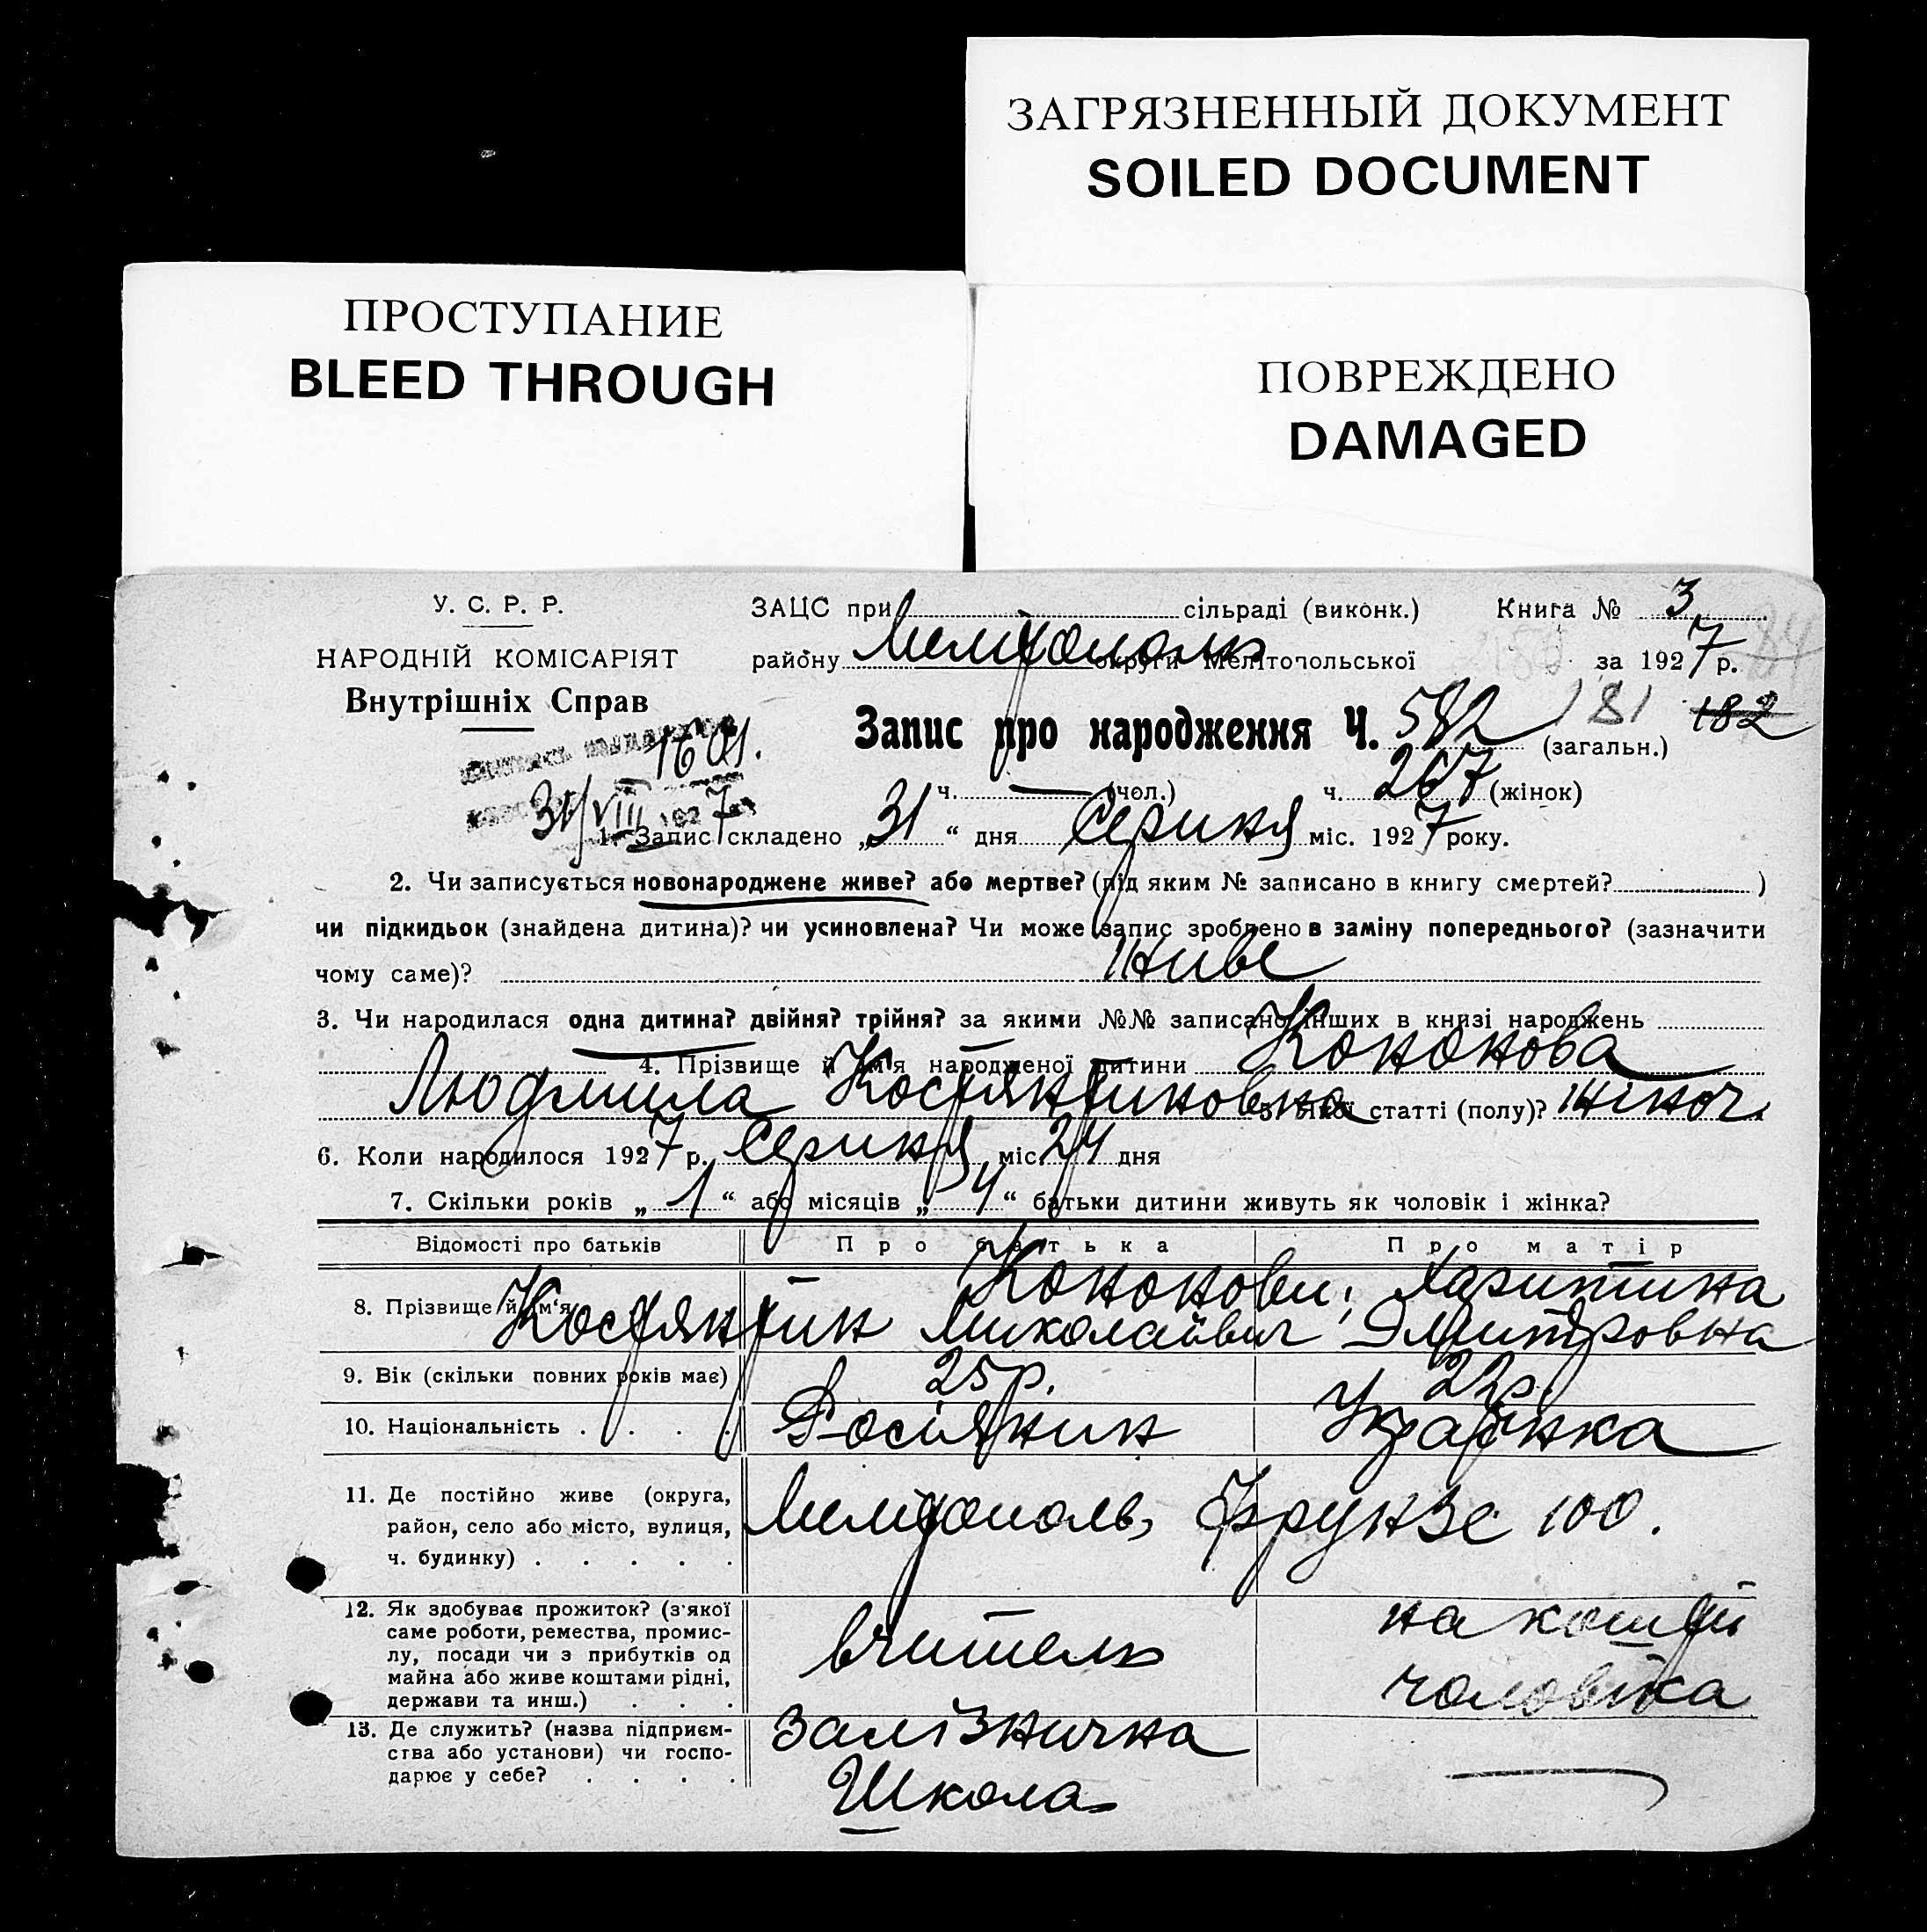 ЗАГРЯЗНЕННЫЙ ДОКУМЕНТ
SOILED DOCUMENT
ПРОСТУПАНИЕ
BLEED THROUGH
ПОВРЕЖДЕНО
DAMAGED
У. С. Р. Р.
НАРОДНІЙ КОМІСАРІЯТ
Внутрішніх Справ
ЗАЦС при сільраді (виконк.) Книга № 3
району Мелітополь округи Мелітопольської за 1927 р.
Запис про народження Ч. 582 (загальн.) 181 182
1601.
31/VIII 1927
ч. — (чол.) ч. 267 (жінок)
1. Запис складено „31“ дня Серпня міс. 1927 року.
2. Чи записується новонароджене живе? або мертве? (під яким № записано в книгу смертей? )
чи підкидьок (знайдена дитина)? чи усиновлена? Чи може запис зроблено в заміну попереднього? (зазначити
чому саме)? Живе
3. Чи народилася одна дитина? двійня? трійня? за якими №№ записано інших в книзі народжень
4. Прізвище й ім'я народженої дитини Кононова
Людмила Костянтиновна 5. Якої статті (полу)? Жіноч.
6. Коли народилося 1927 р. Серпня міс. 24 дня
7. Скільки років „1“ або місяців „4“ батьки дитини живуть як чоловік і жінка?
Відомості про батьків Про батька Про матір
8. Прізвище й ім'я Кононови; Харитина
Костянтин Миколайвич Дмитровна
9. Вік (скільки повних років має) 25 р. 22 р.
10. Національність . . . . Росіянин Українка
11. Де постійно живе (округа,
район, село або місто, вулиця,
ч. будинку) . . . . .
Мелітополь, Фрунзе 100.
12. Як здобуває прожиток? (з якої
саме роботи, ремества, промис-
лу, посади чи з прибутків од
майна або живе коштами рідні,
держави та инш.) . . .
вчитель
на кошти
чоловіка
13. Де служить? (назва підприєм-
ства або установи) чи госпо-
дарює у себе? . . . .
Залізнична
Школа